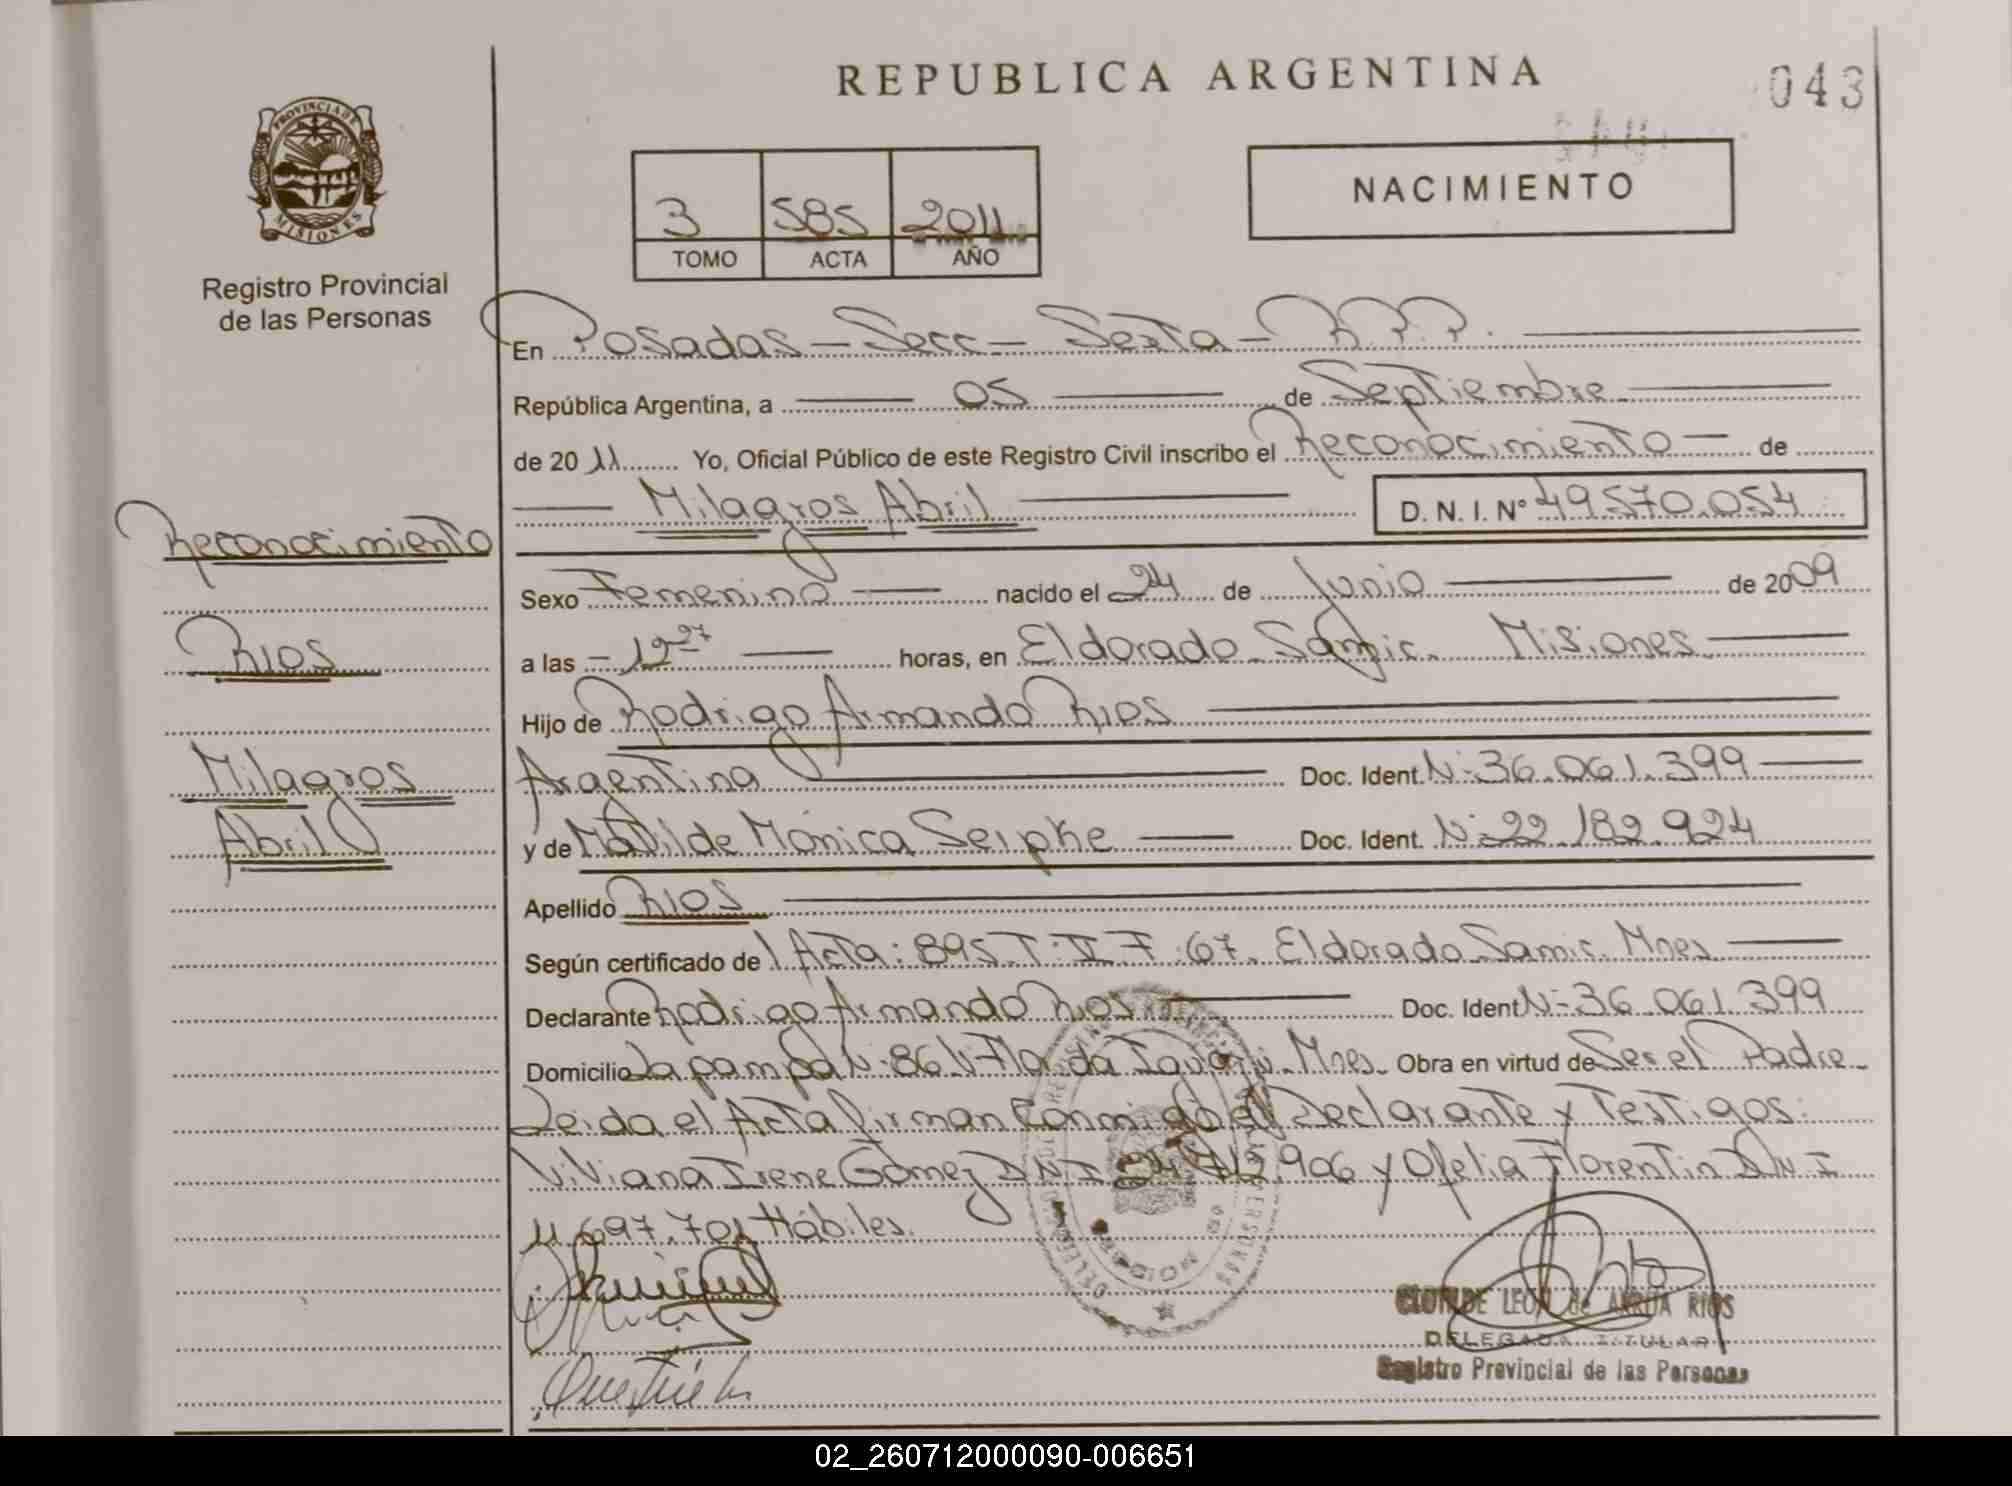 REPUBLICA ARGENTINA
043
PROVINCIA DE
MISIONES
Registro Provincial
de las Personas
3 585 2011
TOMO ACTA AÑO
NACIMIENTO
En Posadas - Secc - Sexta - R.P.P.
República Argentina, a 05 de Septiembre
de 2011 Yo, Oficial Público de este Registro Civil inscribo el Reconocimiento de
Milagros Abril D. N. I. Nº 49.570.054
Reconocimiento
Rios
Milagros
Abril
Sexo Femenino nacido el 24 de Junio de 2009
a las 12 27 horas, en Eldorado Samic. Misiones
Hijo de Rodrigo Armando Rios
Argentina Doc. Ident. Nº 36.061.399
y de Matilde Mónica Seipke Doc. Ident. Nº 22.182.924
Apellido Rios
Según certificado de Acta: 895 T: II F: 67. Eldorado Samic. Mnes
Declarante Rodrigo Armando Rios Doc. Ident Nº 36.061.399
Domicilio La pampa Nº 86 Vº Florida Mnes. Obra en virtud de Ser el Padre
Leida el Acta firman Conmigo el Declarante y Testigos:
Viviana Irene Gómez D.N.I 906 y Ofelia Florentin D.N.I
11.697.701 Hábiles.
CLOTILDE LEON de RIOS
DELEGADA TITULAR
Registro Provincial de las Personas
02_260712000090-006651